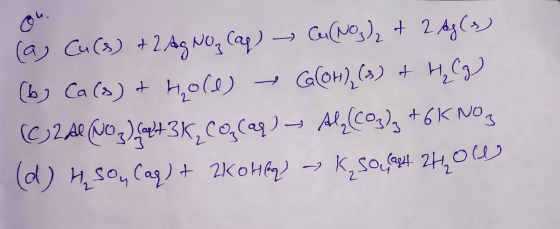 Qu.
(a) Cu(s) + 2AgNO₃(aq) → Cu(NO₃)₂ + 2Ag(s)
(b) Ca(s) + H₂O(l) → Ca(OH)₂(s) + H₂(g)
(c) 2Al(NO₃)₃(aq) + 3K₂CO₃(aq) → Al₂(CO₃)₃ + 6KNO₃
(d) H₂SO₄(aq) + 2KOH(aq) → K₂SO₄(aq) + 2H₂O(l)